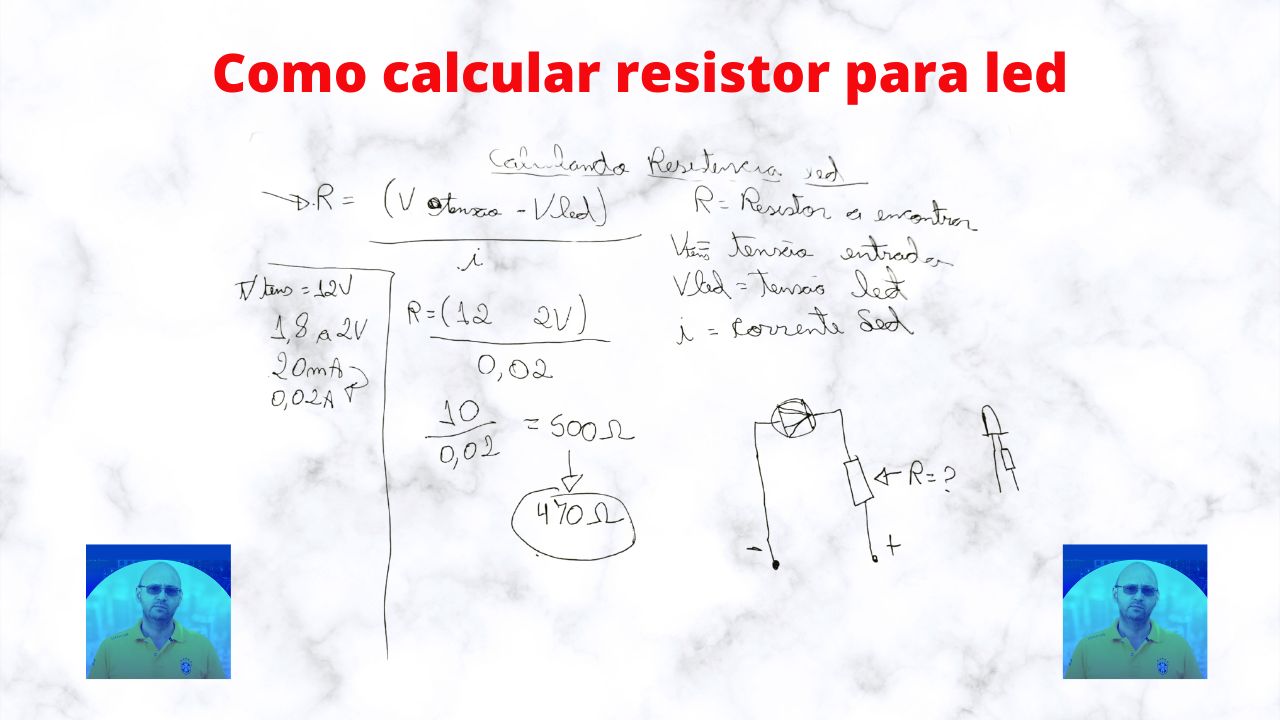 Como calcular resistor para led
Calculando Resistencia led
R = (V tensão - Vled)
i
R = Resistor a encontrar
Vtens = tensão entrada
Vled = Tensão led
i = corrente led
V tens = 12V
1,8 a 2V
20mA
0,02A
R = (12 2V)
0,02
10
0,02
= 500Ω
470Ω
R = ?
- +